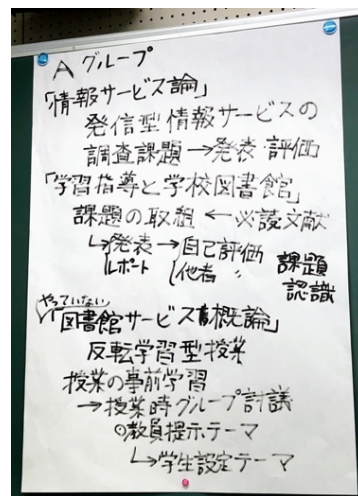 A グループ
「情報サービス論」
発信型情報サービスの
調査課題→発表・評価
「学習指導と学校図書館」
課題の取組 ← 必読文献
↳発表→自己評価
レポート 他者 〃
課題
認識
やっていない
「図書館サービス概論」
反転学習型授業
授業の事前学習
→授業時グループ討議
○教員提示テーマ
↳学生設定テーマ